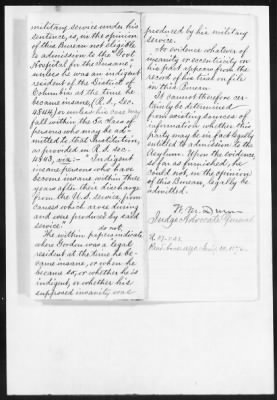 military service under his
sentence, is, in the opinion
of this Bureau not eligible
to admission to the "Govt
Hospital for the Insane",
unless he was an indigent
resident of the District of
Columbia at the time he
became insane, (R.S., Sec.
4844,) or unless his case may
fall within the 3d class of
persons who may be ad-
mitted to that Institution,
as provided in R.S. Sec.
4843, viz:- "Indigent
insane persons who have
become insane within three
years after their discharge
from the U.S. service, from
causes which arose during
and were produced by said
service."
do not
The within papers indicate
where Gordon was a legal
resident at the time he be-
came insane, or when he
became so, or whether he is
indigent, or whether his
supposed insanity was
produced by his military
service.
No evidence whatever of
insanity or eccentricity on
his part appears from the
record of his trial on file
in this Bureau.
It cannot therefore cer-
tainly be determined
from existing sources of
information whether this
party may be in fact legally
entitled to admission to the
Asylum. Upon the evidence,
so far as furnished, he
could not, in the opinion
of this Bureau, legally be
admitted.
W. M. Dunn
Judge Advocate Genl.